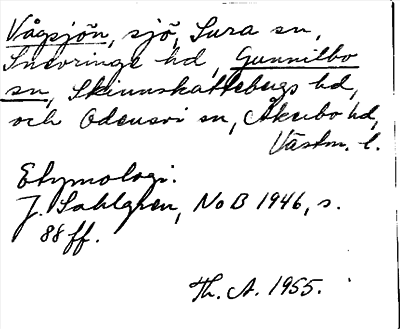 Vågsjön, sjö, Sura sn,
Snevringe hd, Gunnilbo
sn, Skinnskattebergs hd,
och Odensvi sn, Åkerbo hd,
Västm. l.
Etymologi.
J. Sahlgren, NoB 1946, s.
88 ff.
Th. A. 1955.